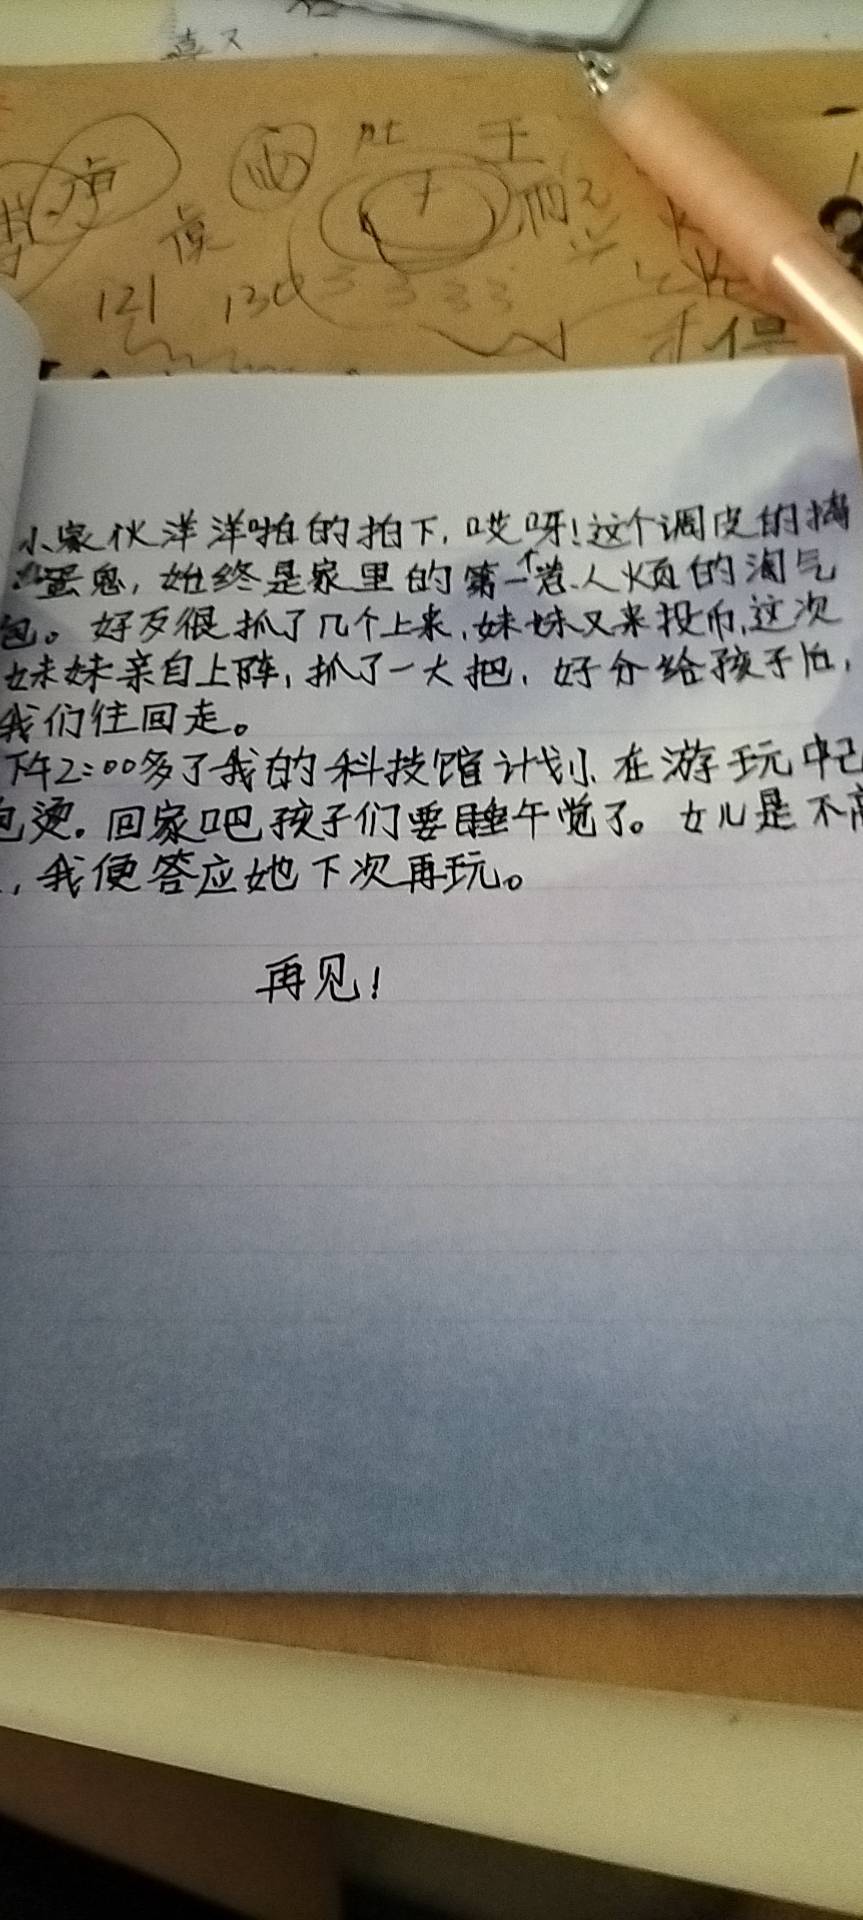 喜又
西 肚 王
121 134 3 3 3 3
小家伙洋洋啪的拍下,哎呀!这个调皮的捣
蛋鬼,始终是家里的第一个惹人烦的淘气
包。好歹很抓了几个上来,妹妹又来投币,这次
妹妹亲自上阵,抓了一大把,好分给孩子们,
我们往回走。
下午2:00多了我的科技馆计划、在游玩中己
泡烫。回家吧孩子们要睡午觉了。女儿是不高
,我便答应她下次再玩。
再见!